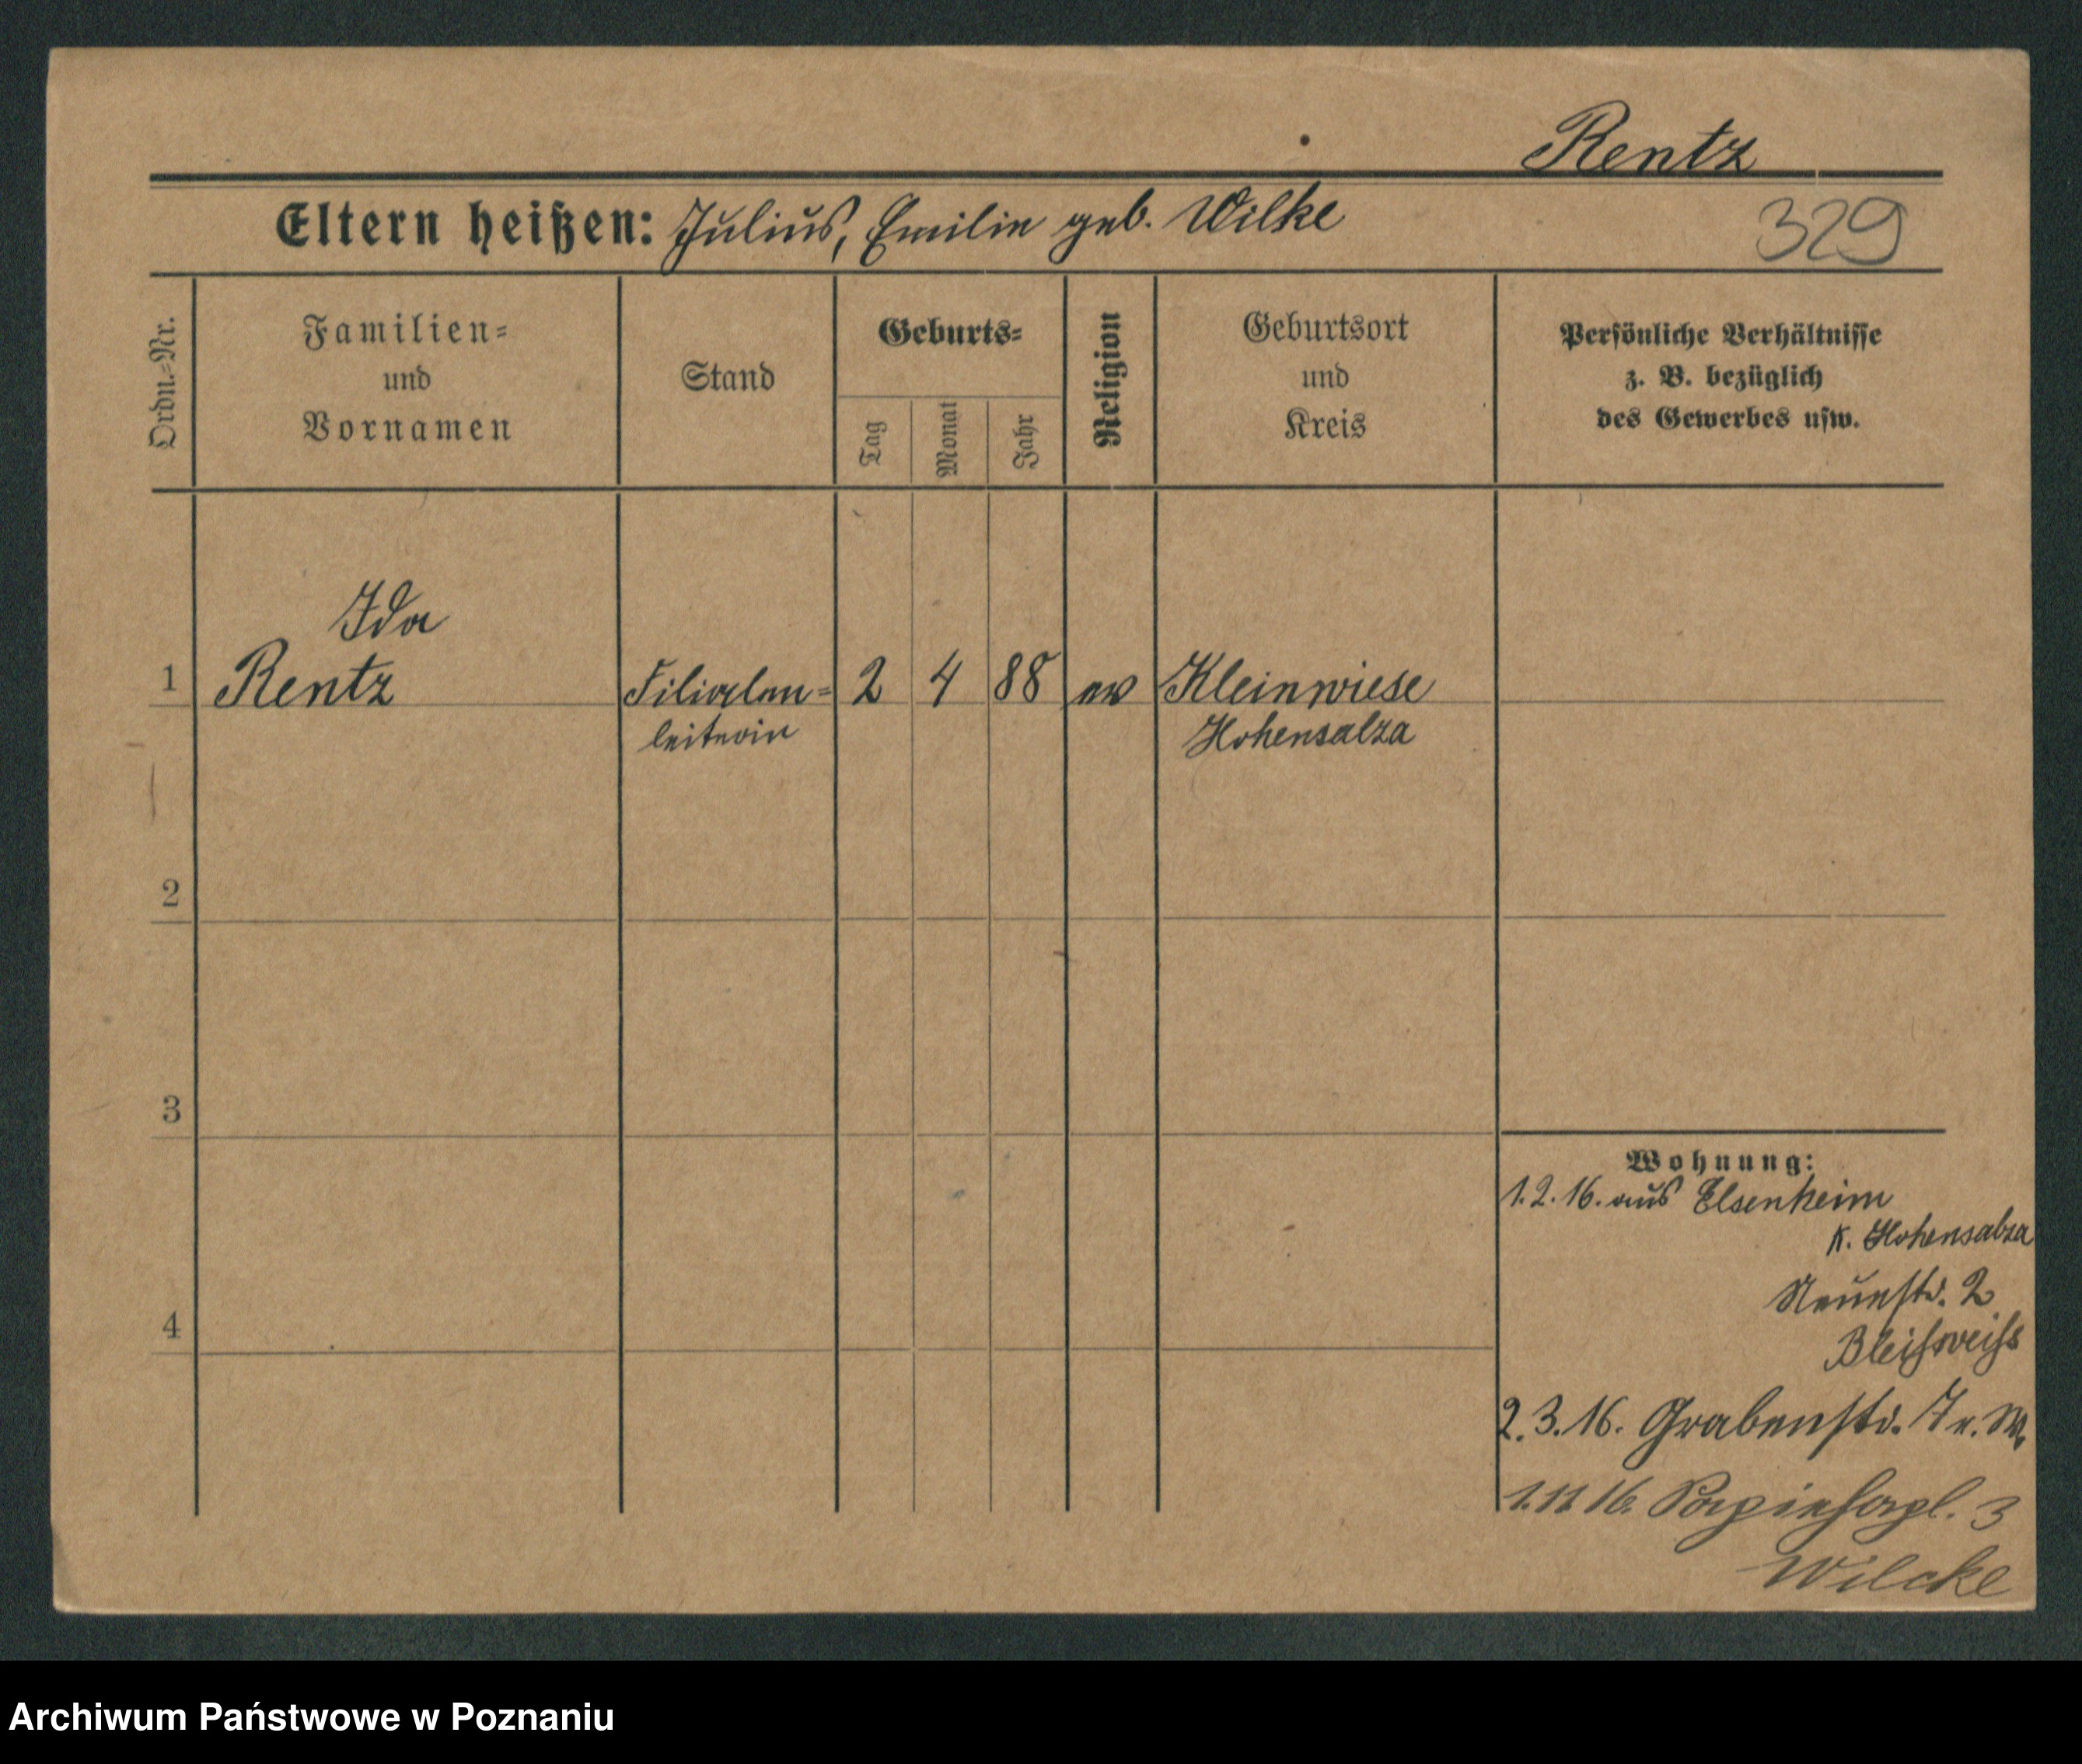 Rentz
Eltern heißen: Julius, Emilie geb. Wilke
329
Ordn.-Nr.
Familien-
und
Vornamen
Stand
Geburts-
Tag
Monat
Jahr
Religion
Geburtsort
und
Kreis
Persönliche Verhältnisse
z. B. bezüglich
des Gewerbes usw.
Ida
1 Rentz Filialen- 2 4 88 ev Kleinwiese
leiterin Hohensalza
2
3
4
Wohnung:
1.2.16. aus Elsenheim
K. Hohensalza
Neuestr. 2
Bleisweiss
2.3.16. Grabenstr. 7
1.11 16. 3
Wilcke
Archiwum Państwowe w Poznaniu